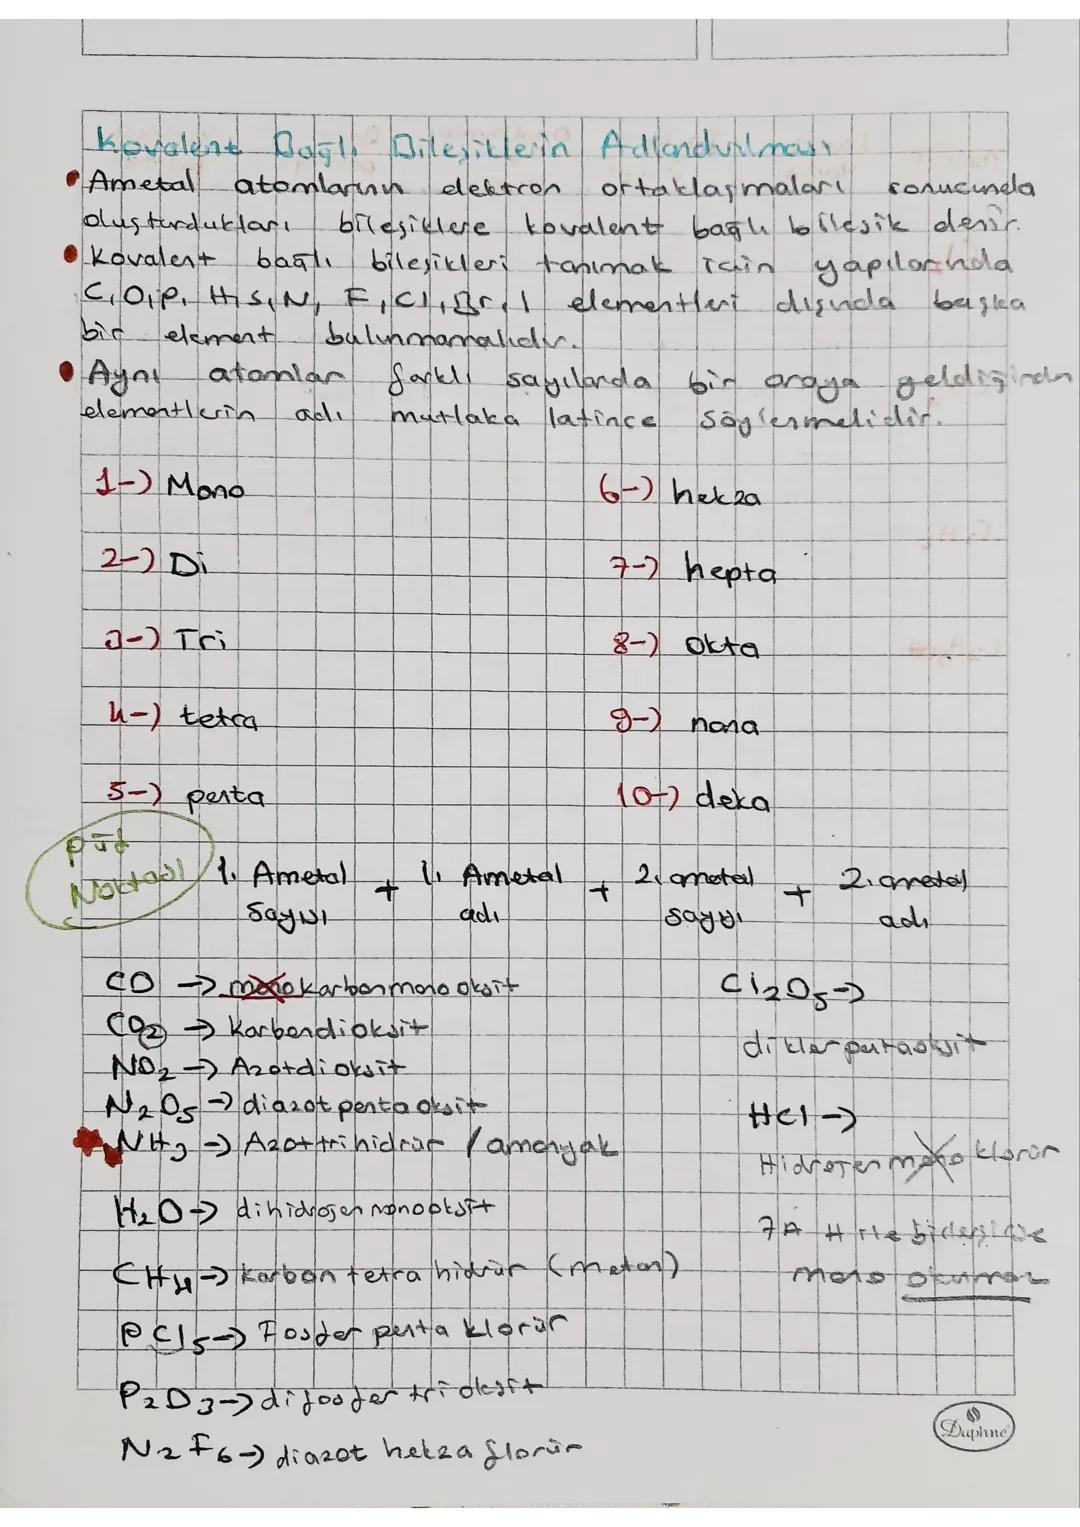 Kovalent Bağlı Bileşiklerin Adlandırılması
Ametal atomlarının elektron ortaklaşmaları sonucunda
oluşturdukları bileşiklere kovalent bağlı bileşik denir.
Kovalent bağlı bileşikleri tanımak için yapılarında
C, O, P, H, S, N, F, Cl, Br, I elementleri dışında başka
bir element bulunmamalıdır.
Aynı atomlar farklı sayılarda bir araya geldiğinden
elementlerin adı mutlaka latince söylenmelidir.
1-) Mono
6-) hekza
2-) Di
7-) hepta
3-) Tri
8-) Okta
4-) tetra
9-) nona
5-) penta
10-) deka
püf
Noktası
1. Ametal sayısı + 1. Ametal adı + 2. ametal sayısı + 2. ametal adı
CO → mono karbonmono oksit
Cl2O5 →
CO2 → Karbondioksit
diklorpentaoksit
NO2 → Azotdioksit
N2O5 → diazot penta oksit
HCl →
NH3 → Azot trihidrür / amonyak
Hidrojen mono klorür
H2O → dihidrojen monooksit
7A H ile birleşince
CH4 → Karbon tetra hidrür (metan)
mono okunmaz
PCl5 → Fosfor penta klorür
P2O3 → difosfor tri oksit
N2F6 → diazot hekza florür
Daphne